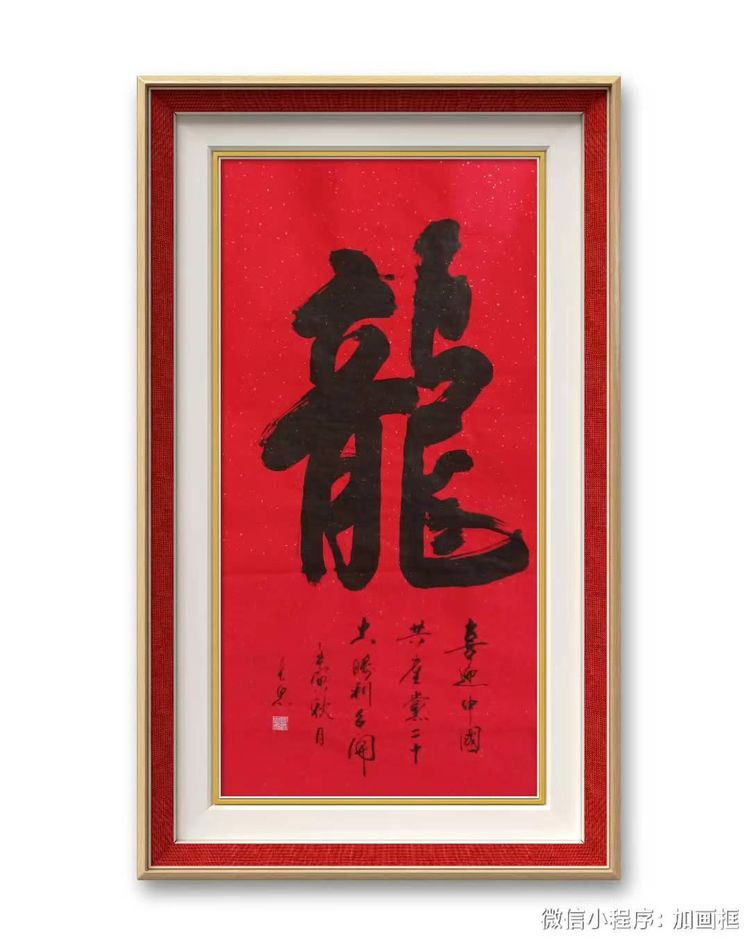 龍
喜迎中國
共產黨二十
大勝利召開
壬寅秋月
微信小程序：加画框